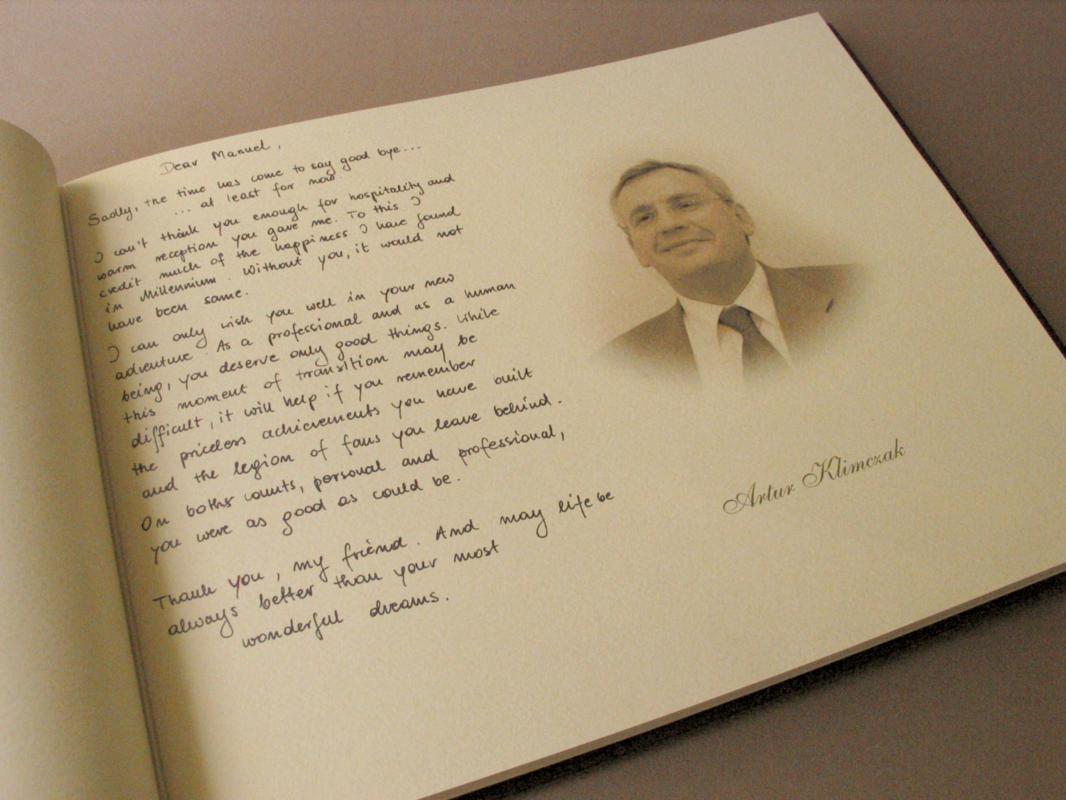 Dear Manuel,
Sadly, the time has come to say good bye...
... at least for now
I can't think you enough for hospitality and
warm reception you gave me. To this I
credit much of the happiness I have found
in Millennium. Without you, it would not
have been same.
I can only wish you well in your new
adventure. As a professional and as a human
being, you deserve only good things. While
this moment of transition may be
difficult, it will help if you remember
the priceless achievements you have built
and the legion of fans you leave behind.
On boths counts, personal and professional,
you were as good as could be.
Thank you, my friend. And may life be
always better than your most
wonderful dreams.
Artur Klimczak